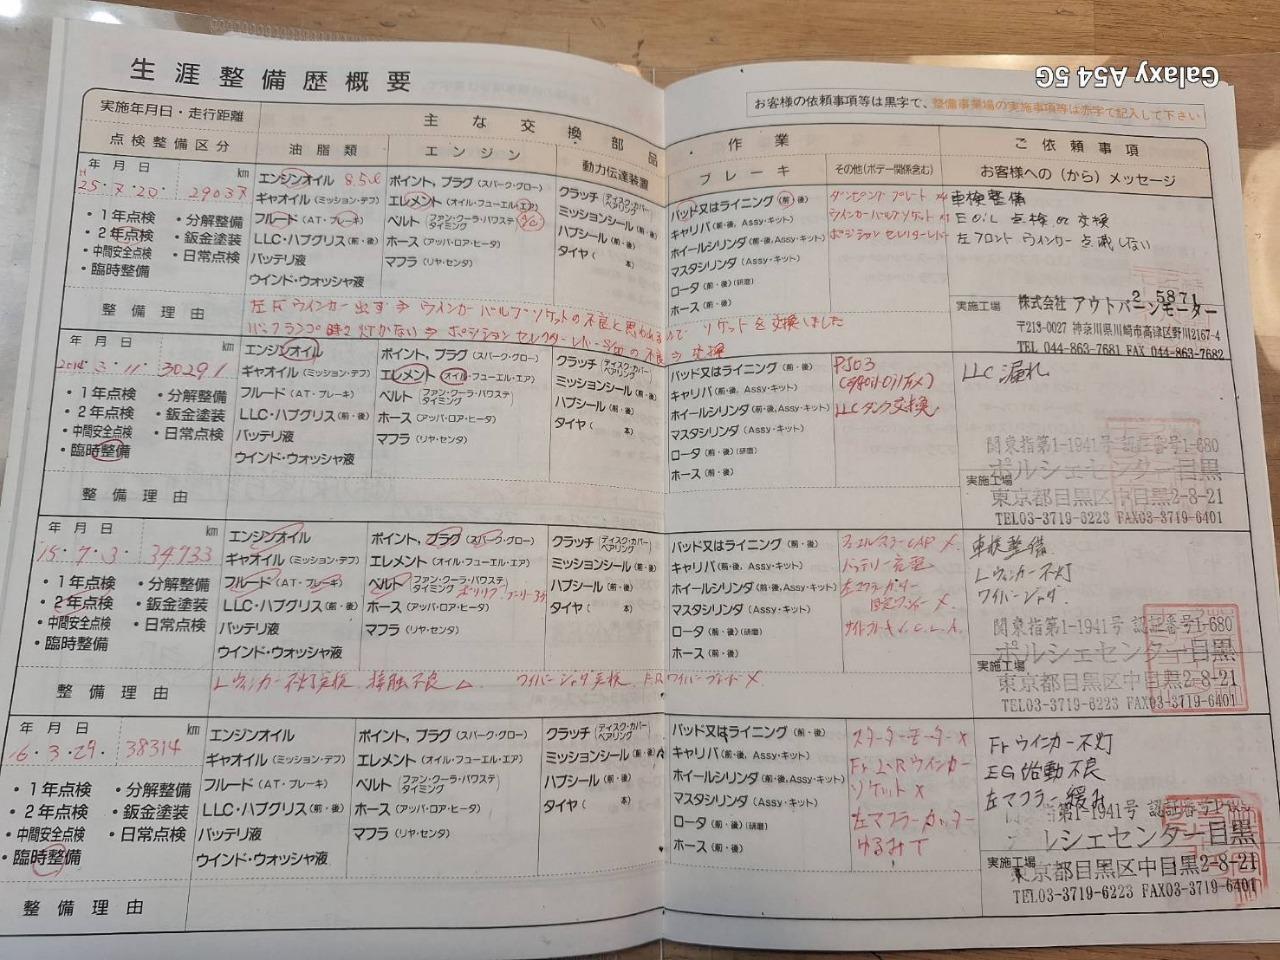 生涯整備歴概要
Galaxy A54 5G
お客様の依頼事項等は黒字で、整備事業場の実施事項等は赤字で記入して下さい
実施年月日・走行距離
主な交換部品・作業
ご依頼事項
点検整備区分
油脂類
エンジン
動力伝達装置
ブレーキ
その他(ボデー関係含む)
お客様への(から)メッセージ
年 月 日 km
H25・7・20・ 29037
・1年点検 ・分解整備
・2年点検 ・鈑金塗装
・中間安全点検 ・日常点検
・臨時整備
エンジンオイル 8.5ℓ
ギャオイル(ミッション・デフ)
フルード(AT・ブレーキ)
LLC・ハブグリス(前・後)
バッテリ液
ウインド・ウォッシャ液
ポイント, プラグ(スパーク・グロー)
エレメント(オイル・フューエル・エア)
ベルト(ファン・クーラ・パワステ タイミング) A/C
ホース(アッパ・ロア・ヒータ)
マフラ(リヤ・センタ)
クラッチ(ディスク・カバー ベアリング)
ミッションシール(前・後)
ハブシール(前・後)
タイヤ( 本)
パッド又はライニング(前・後)
キャリパ(前・後, Assy・キット)
ホイールシリンダ(前・後, Assy・キット)
マスタシリンダ(Assy・キット)
ロータ(前・後)(研磨)
ホース(前・後)
ダンピングプレート ×4
ウインカーバルブソケット ×1
ポジションセレクターレバー
車検整備
E OiL 点検 or 交換
左フロント ウインカー 点滅しない
整備理由
左Fウインカー出ず→ウインカーバルブソケットの不良と思われるので ソケットを交換しました
バックランプ時々灯かない→ポジションセレクターレバーS/Wの不良→交換
実施工場
2 5871
株式会社 アウトバーンモーター
〒213-0027 神奈川県川崎市高津区野川2167-4
TEL 044-863-7681 FAX 044-863-7682
年 月 日 km
2014・3・11・ 30291
・1年点検 ・分解整備
・2年点検 ・鈑金塗装
・中間安全点検 ・日常点検
・臨時整備
エンジンオイル
ギャオイル(ミッション・デフ)
フルード(AT・ブレーキ)
LLC・ハブグリス(前・後)
バッテリ液
ウインド・ウォッシャ液
ポイント, プラグ(スパーク・グロー)
エレメント(オイル・フューエル・エア)
ベルト(ファン・クーラ・パワステ タイミング)
ホース(アッパ・ロア・ヒータ)
マフラ(リヤ・センタ)
クラッチ(ディスク・カバー ベアリング)
ミッションシール(前・後)
ハブシール(前・後)
タイヤ( 本)
パッド又はライニング(前・後)
キャリパ(前・後, Assy・キット)
ホイールシリンダ(前・後, Assy・キット)
マスタシリンダ(Assy・キット)
ロータ(前・後)(研磨)
ホース(前・後)
PJ03
LLCタンク交換
LLC 漏れ
整備理由
実施工場
関東指第1-1941号 認証番号1-680
ポルシェセンター目黒
東京都目黒区中目黒2-8-21
TEL03-3719-6223 FAX03-3719-6401
年 月 日 km
15・7・3・ 34933
・1年点検 ・分解整備
・2年点検 ・鈑金塗装
・中間安全点検 ・日常点検
・臨時整備
エンジンオイル
ギャオイル(ミッション・デフ)
フルード(AT・ブレーキ)
LLC・ハブグリス(前・後)
バッテリ液
ウインド・ウォッシャ液
ポイント, プラグ(スパーク・グロー)
エレメント(オイル・フューエル・エア)
ベルト(ファン・クーラ・パワステ タイミング)
ホース(アッパ・ロア・ヒータ)
マフラ(リヤ・センタ)
クラッチ(ディスク・カバー ベアリング)
ミッションシール(前・後)
ハブシール(前・後)
タイヤ( 本)
パッド又はライニング(前・後)
キャリパ(前・後, Assy・キット)
ホイールシリンダ(前・後, Assy・キット)
マスタシリンダ(Assy・キット)
ロータ(前・後)(研磨)
ホース(前・後)
バッテリー充電
左マフラーカッター
車検整備
Lウィンカー不灯
ワイパージャダ
整備理由
Lウィンカー不灯点検、接触不良 ワイパージャダ点検
実施工場
関東指第1-1941号 認証番号1-680
ポルシェセンター目黒
東京都目黒区中目黒2-8-21
TEL03-3719-6223 FAX03-3719-6401
年 月 日 km
16・3・29・ 38314
・1年点検 ・分解整備
・2年点検 ・鈑金塗装
・中間安全点検 ・日常点検
・臨時整備
エンジンオイル
ギャオイル(ミッション・デフ)
フルード(AT・ブレーキ)
LLC・ハブグリス(前・後)
バッテリ液
ウインド・ウォッシャ液
ポイント, プラグ(スパーク・グロー)
エレメント(オイル・フューエル・エア)
ベルト(ファン・クーラ・パワステ タイミング)
ホース(アッパ・ロア・ヒータ)
マフラ(リヤ・センタ)
クラッチ(ディスク・カバー ベアリング)
ミッションシール(前・後)
ハブシール(前・後)
タイヤ( 本)
パッド又はライニング(前・後)
キャリパ(前・後, Assy・キット)
ホイールシリンダ(前・後, Assy・キット)
マスタシリンダ(Assy・キット)
ロータ(前・後)(研磨)
ホース(前・後)
スターターモーター ×
Fr L・R ウインカー
ソケット ×
左マフラーカッター
ゆるみT
Fr ウインカー不灯
EG 始動不良
左マフラー緩み
整備理由
実施工場
第1-1941号 認証番号1-680
ポルシェセンター目黒
東京都目黒区中目黒2-8-21
TEL03-3719-6223 FAX03-3719-6401